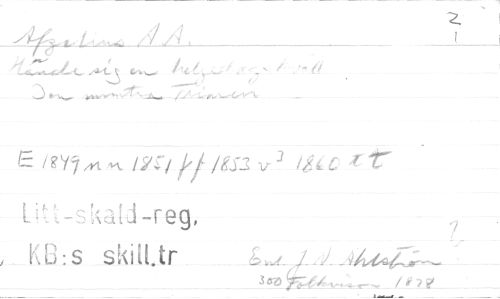 2
1
Afzelius A A.
Hände sig en helgedagskväll
Den muntra
E 1849 nn 1851 ff 1853 v³ 1860 tt
Litt-skald-reg.
KB:s skill.tr
?
Enl J N Ahlström
300 Folkvisor 1878